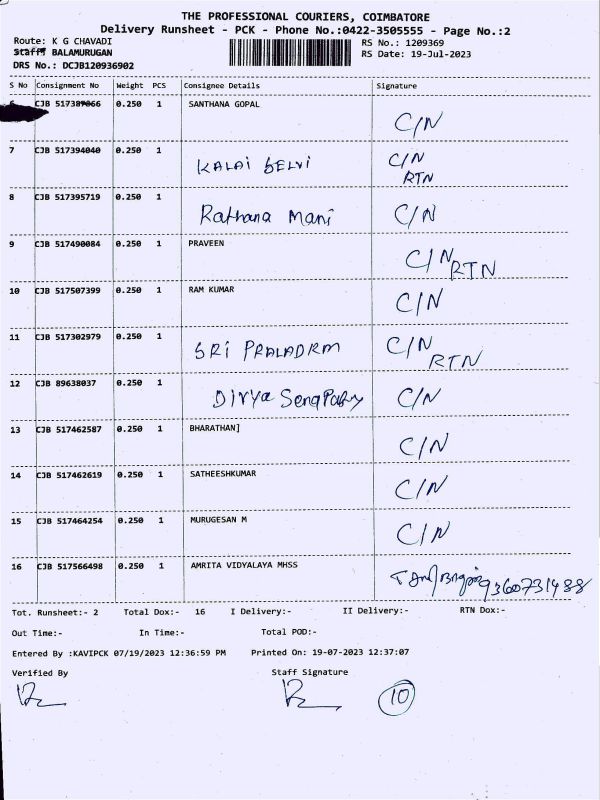 THE PROFESSIONAL COURIERS, COIMBATORE
Delivery Runsheet - PCK - Phone No.:0422-3505555 - Page No.:2
Route: K G CHAVADI RS No.: 1209369
Staff: BALAMURUGAN RS Date: 19-Jul-2023
DRS No.: DCJB120936902
S No Consignment No Weight PCS Consignee Details Signature
CJB 517387066 0.250 1 SANTHANA GOPAL C/N
7 CJB 517394040 0.250 1 KALAI SELVI C/N
RTN
8 CJB 517395719 0.250 1 Rathana Mani C/N
9 CJB 517490084 0.250 1 PRAVEEN C/N RTN
10 CJB 517507399 0.250 1 RAM KUMAR C/N
11 CJB 517302979 0.250 1 SRI C/N RTN
12 CJB 89638037 0.250 1 Divya C/N
13 CJB 517462587 0.250 1 BHARATHAN] C/N
14 CJB 517462619 0.250 1 SATHEESHKUMAR C/N
15 CJB 517464254 0.250 1 MURUGESAN M C/N
16 CJB 517566498 0.250 1 AMRITA VIDYALAYA MHSS 9360731488
Tot. Runsheet:- 2 Total Dox:- 16 I Delivery:- II Delivery:- RTN Dox:-
Out Time:- In Time:- Total POD:-
Entered By :KAVIPCK 07/19/2023 12:36:59 PM Printed On: 19-07-2023 12:37:07
Verified By Staff Signature
10